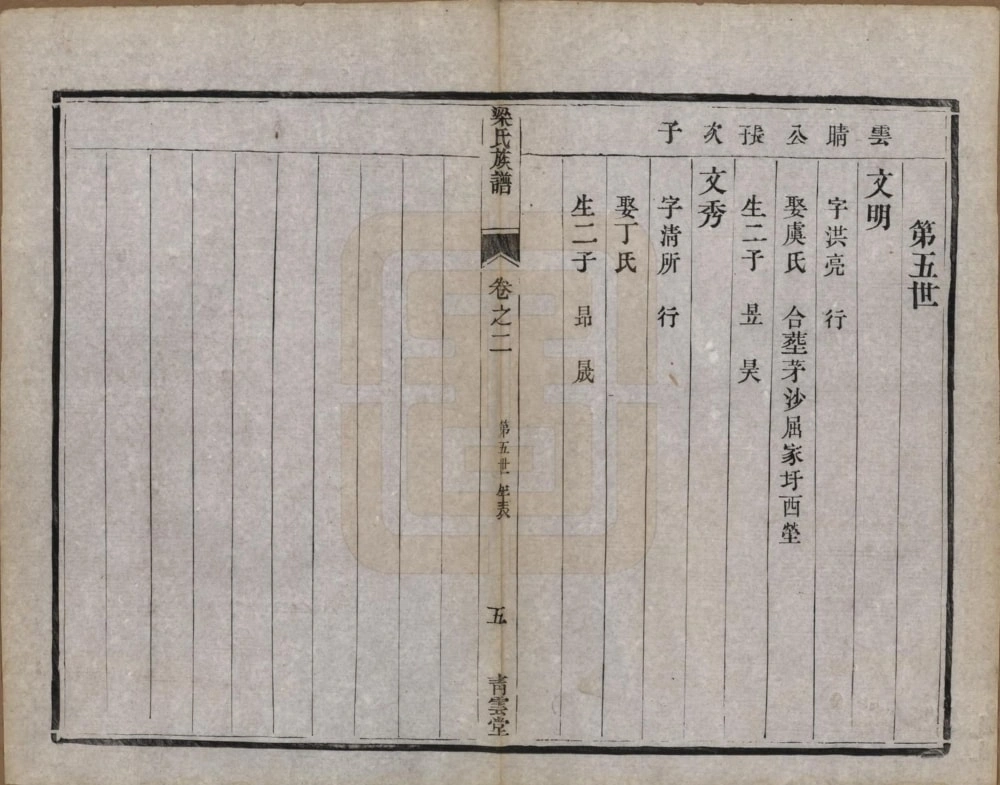 第五世
雲晴公張次子
文明
字洪亮 行
娶虞氏 合塟茅沙屈家圩西塋
生二子 昱 昊
文秀
字清所 行
娶丁氏
生二子 昻 晟
梁氏族譜 卷之二 第五世年表 五 青雲堂